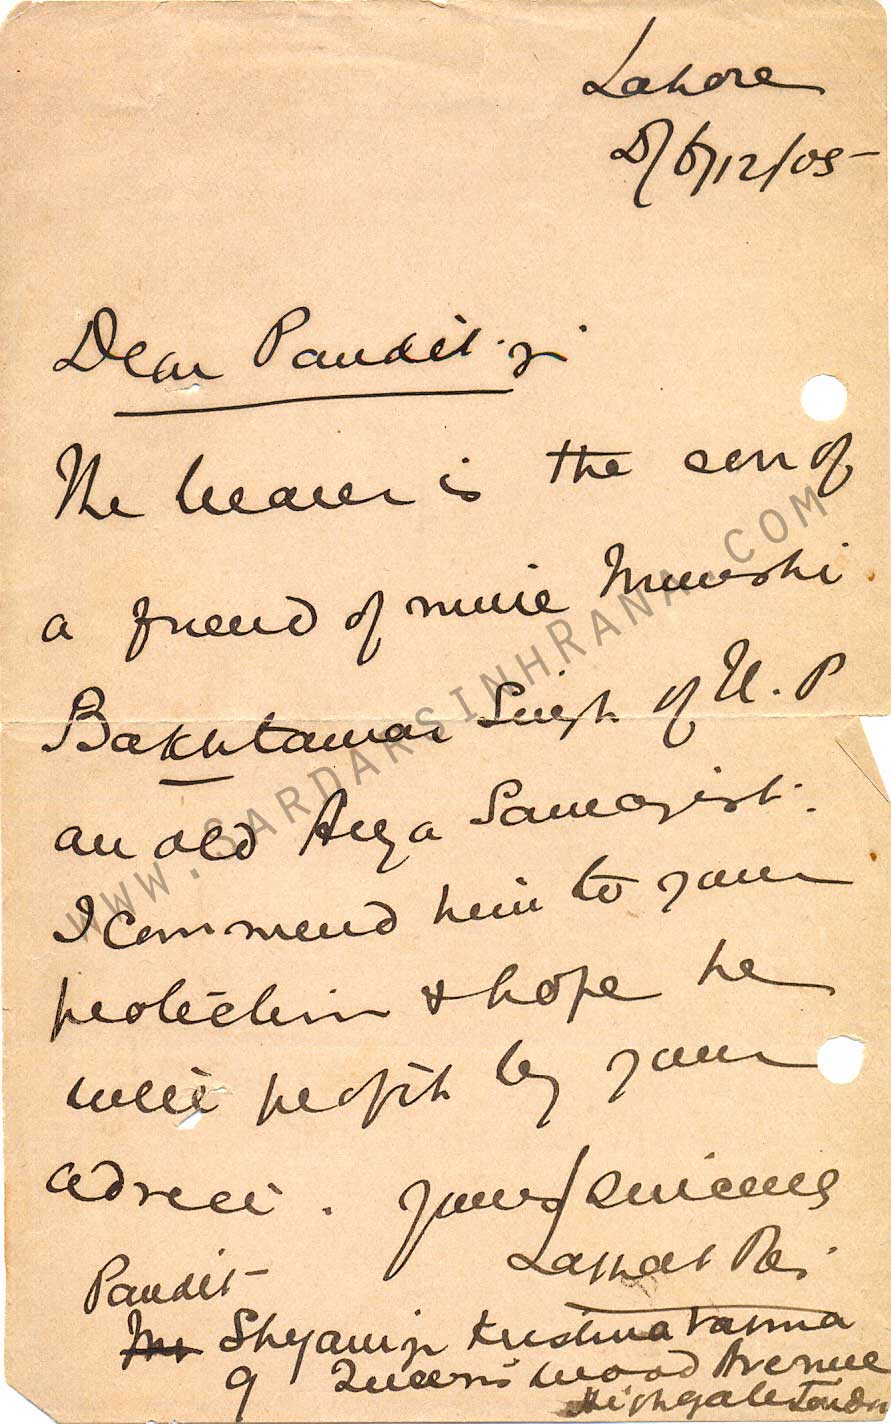 Lahore
D/ 6/12/05
Dear Pandit-ji
The bearer is the son of
a friend of mine Munshi
Bakhtawar Singh of U. P
an old Arya Samajist.
I commend him to your
protection & hope he
will profit by your
advice. Yours/Sincerely
Lajpat Rai
Pandit
Mr Shyamji Krishnavarma
9 Queen's Wood Avenue
Highgate London
WWW.SARDARSINHRANA.COM